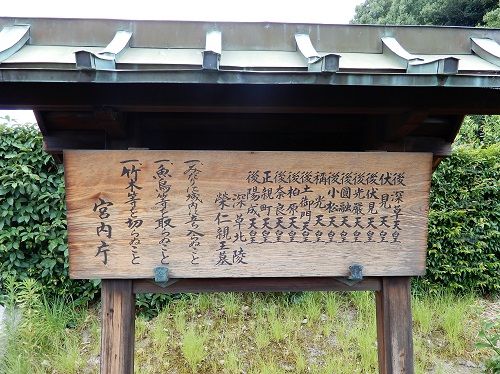 後深草天皇
伏見天皇
後伏見天皇
後光嚴天皇
後圓融天皇
後小松天皇
稱光天皇
後土御門天皇
後柏原天皇
後奈良天皇
正親町天皇
後陽成天皇
深草北陵
榮仁親王墓
一、みだりに域内に立入らぬこと
一、魚鳥等を取らぬこと
一、竹木等を切らぬこと
宮内庁